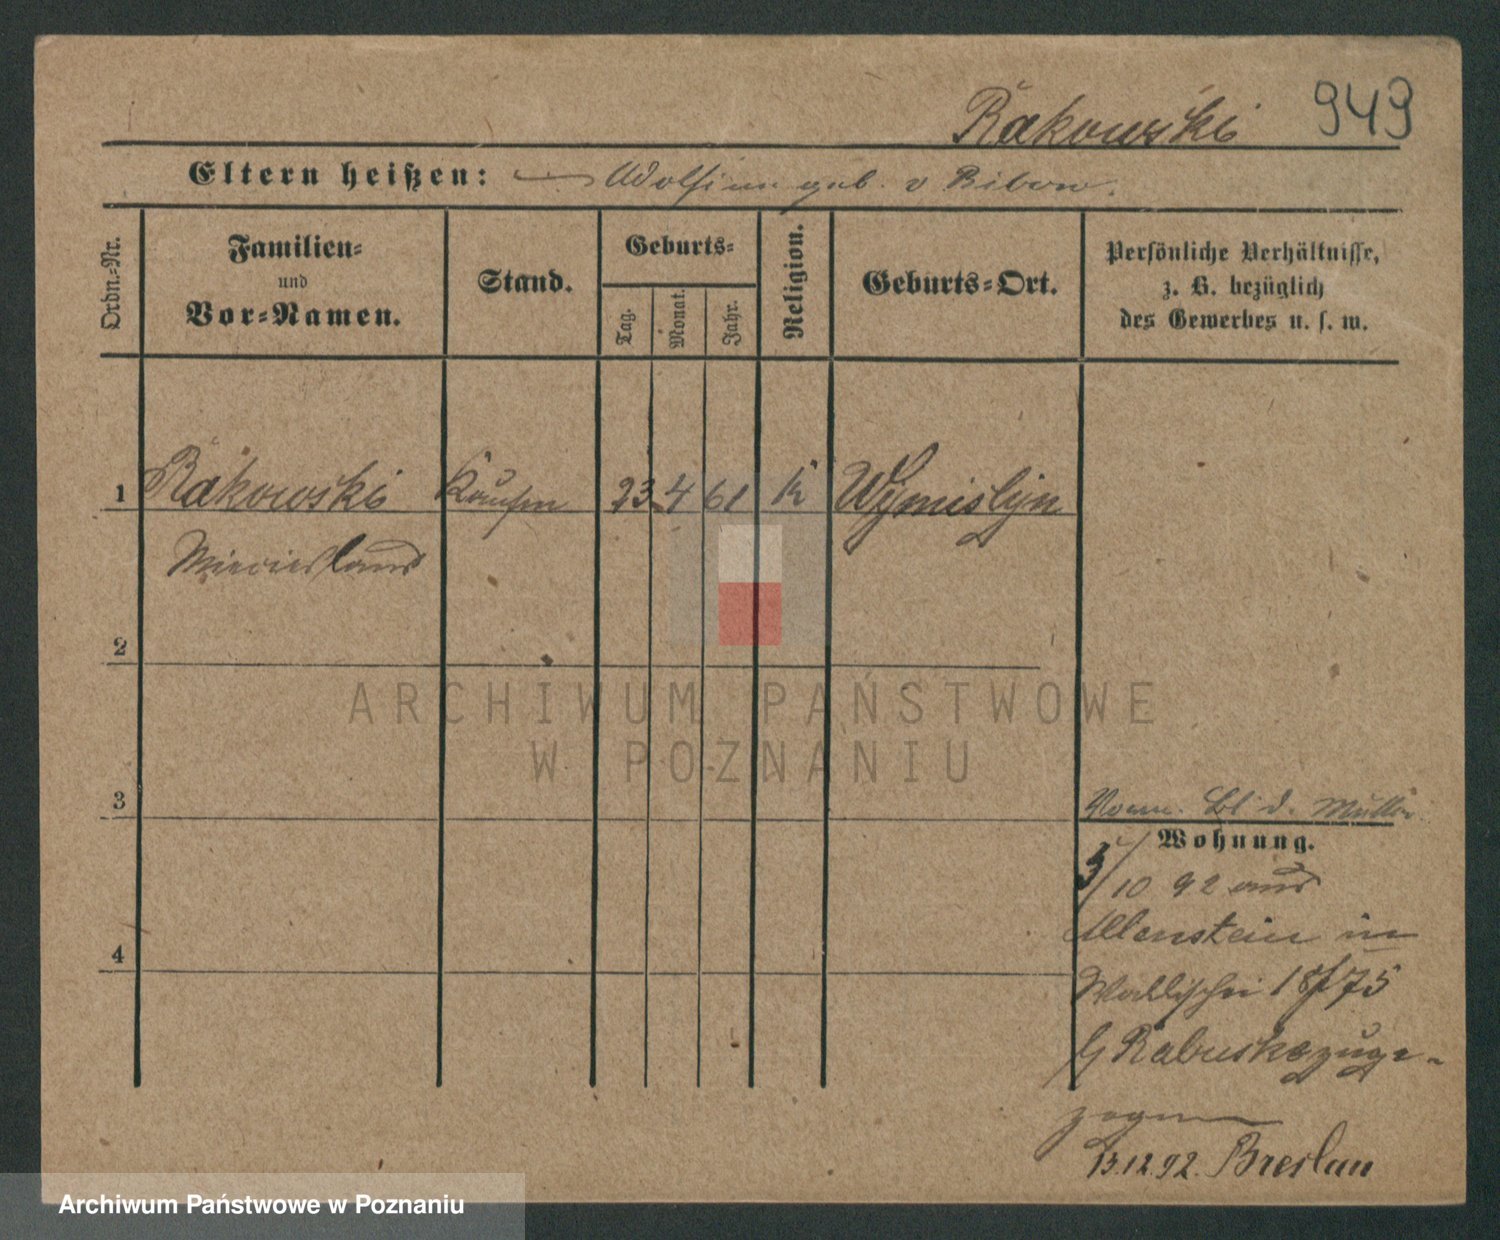 Rakowski 949
Eltern heißen: Adolf inn geb. v Ribow.
Ordn.-Nr.
Familien-
und
Vor-Namen.
Stand.
Geburts-
Tag.
Monat.
Jahr.
Religion.
Geburts-Ort.
Persönliche Verhältnisse,
z. B. bezüglich
des Gewerbes u. s. w.
1 Rakowski Kaufm 23 4 61 k Wymislyn
2
3
4
Müller
Wohnung.
3/10 92 aus
Allenstein in
Wallischei 18/75
b Rabuske zuge-
zogen
13.12.92. Breslau
ARCHIWUM PAŃSTWOWE
W POZNANIU
Archiwum Państwowe w Poznaniu